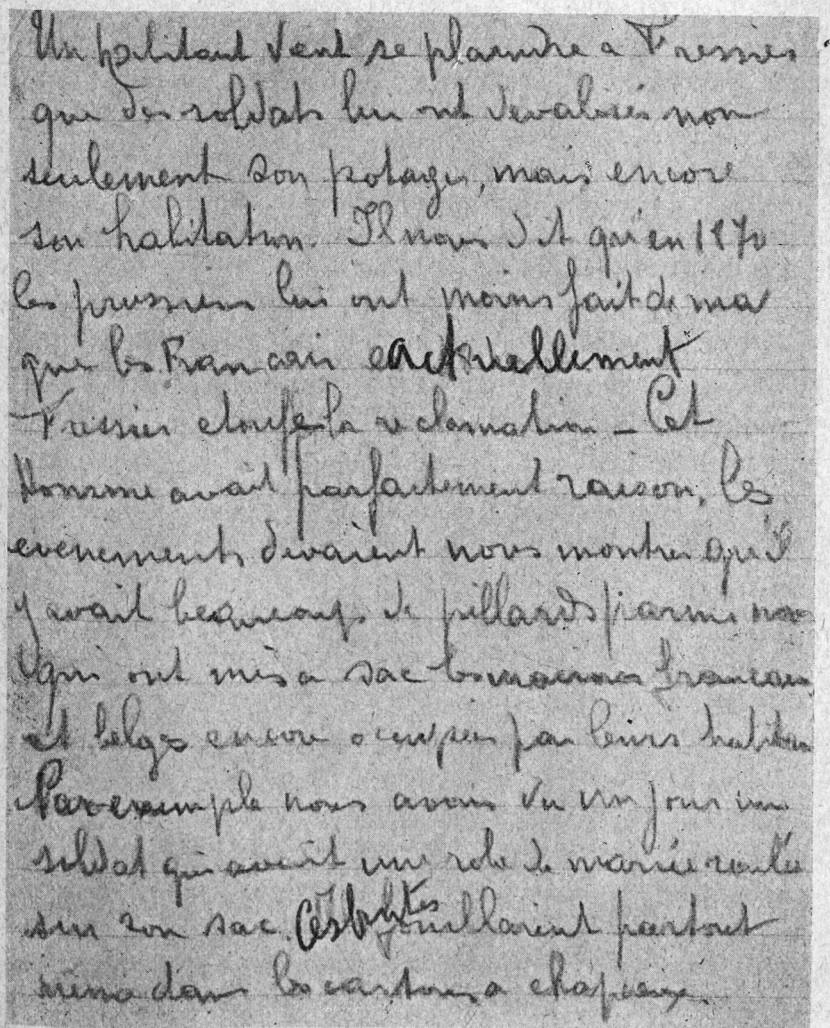 Un habitant vient se plaindre a Fressies
que des soldats lui ont devalisés non
seulement son potager, mais encore
son habitation. Il nous dit qu'en 1870
les prussiens lui ont moins fait de mal
que les Francais actuellement
Fressies etouffe la reclamation – Cet
Homme avait parfaitement raison, les
evenements devaient nous montrer qu'il
y avait beaucoup de pillards parmi nous
qui ont mis a sac les maisons francaises
et belges encore occupées par leurs habitan
Par exemple nous avons vu un jour un
soldat qui avait une robe de mariée roulée
sur son sac. Ces fouillaient partout
meme dans les cartons a chapeaux.